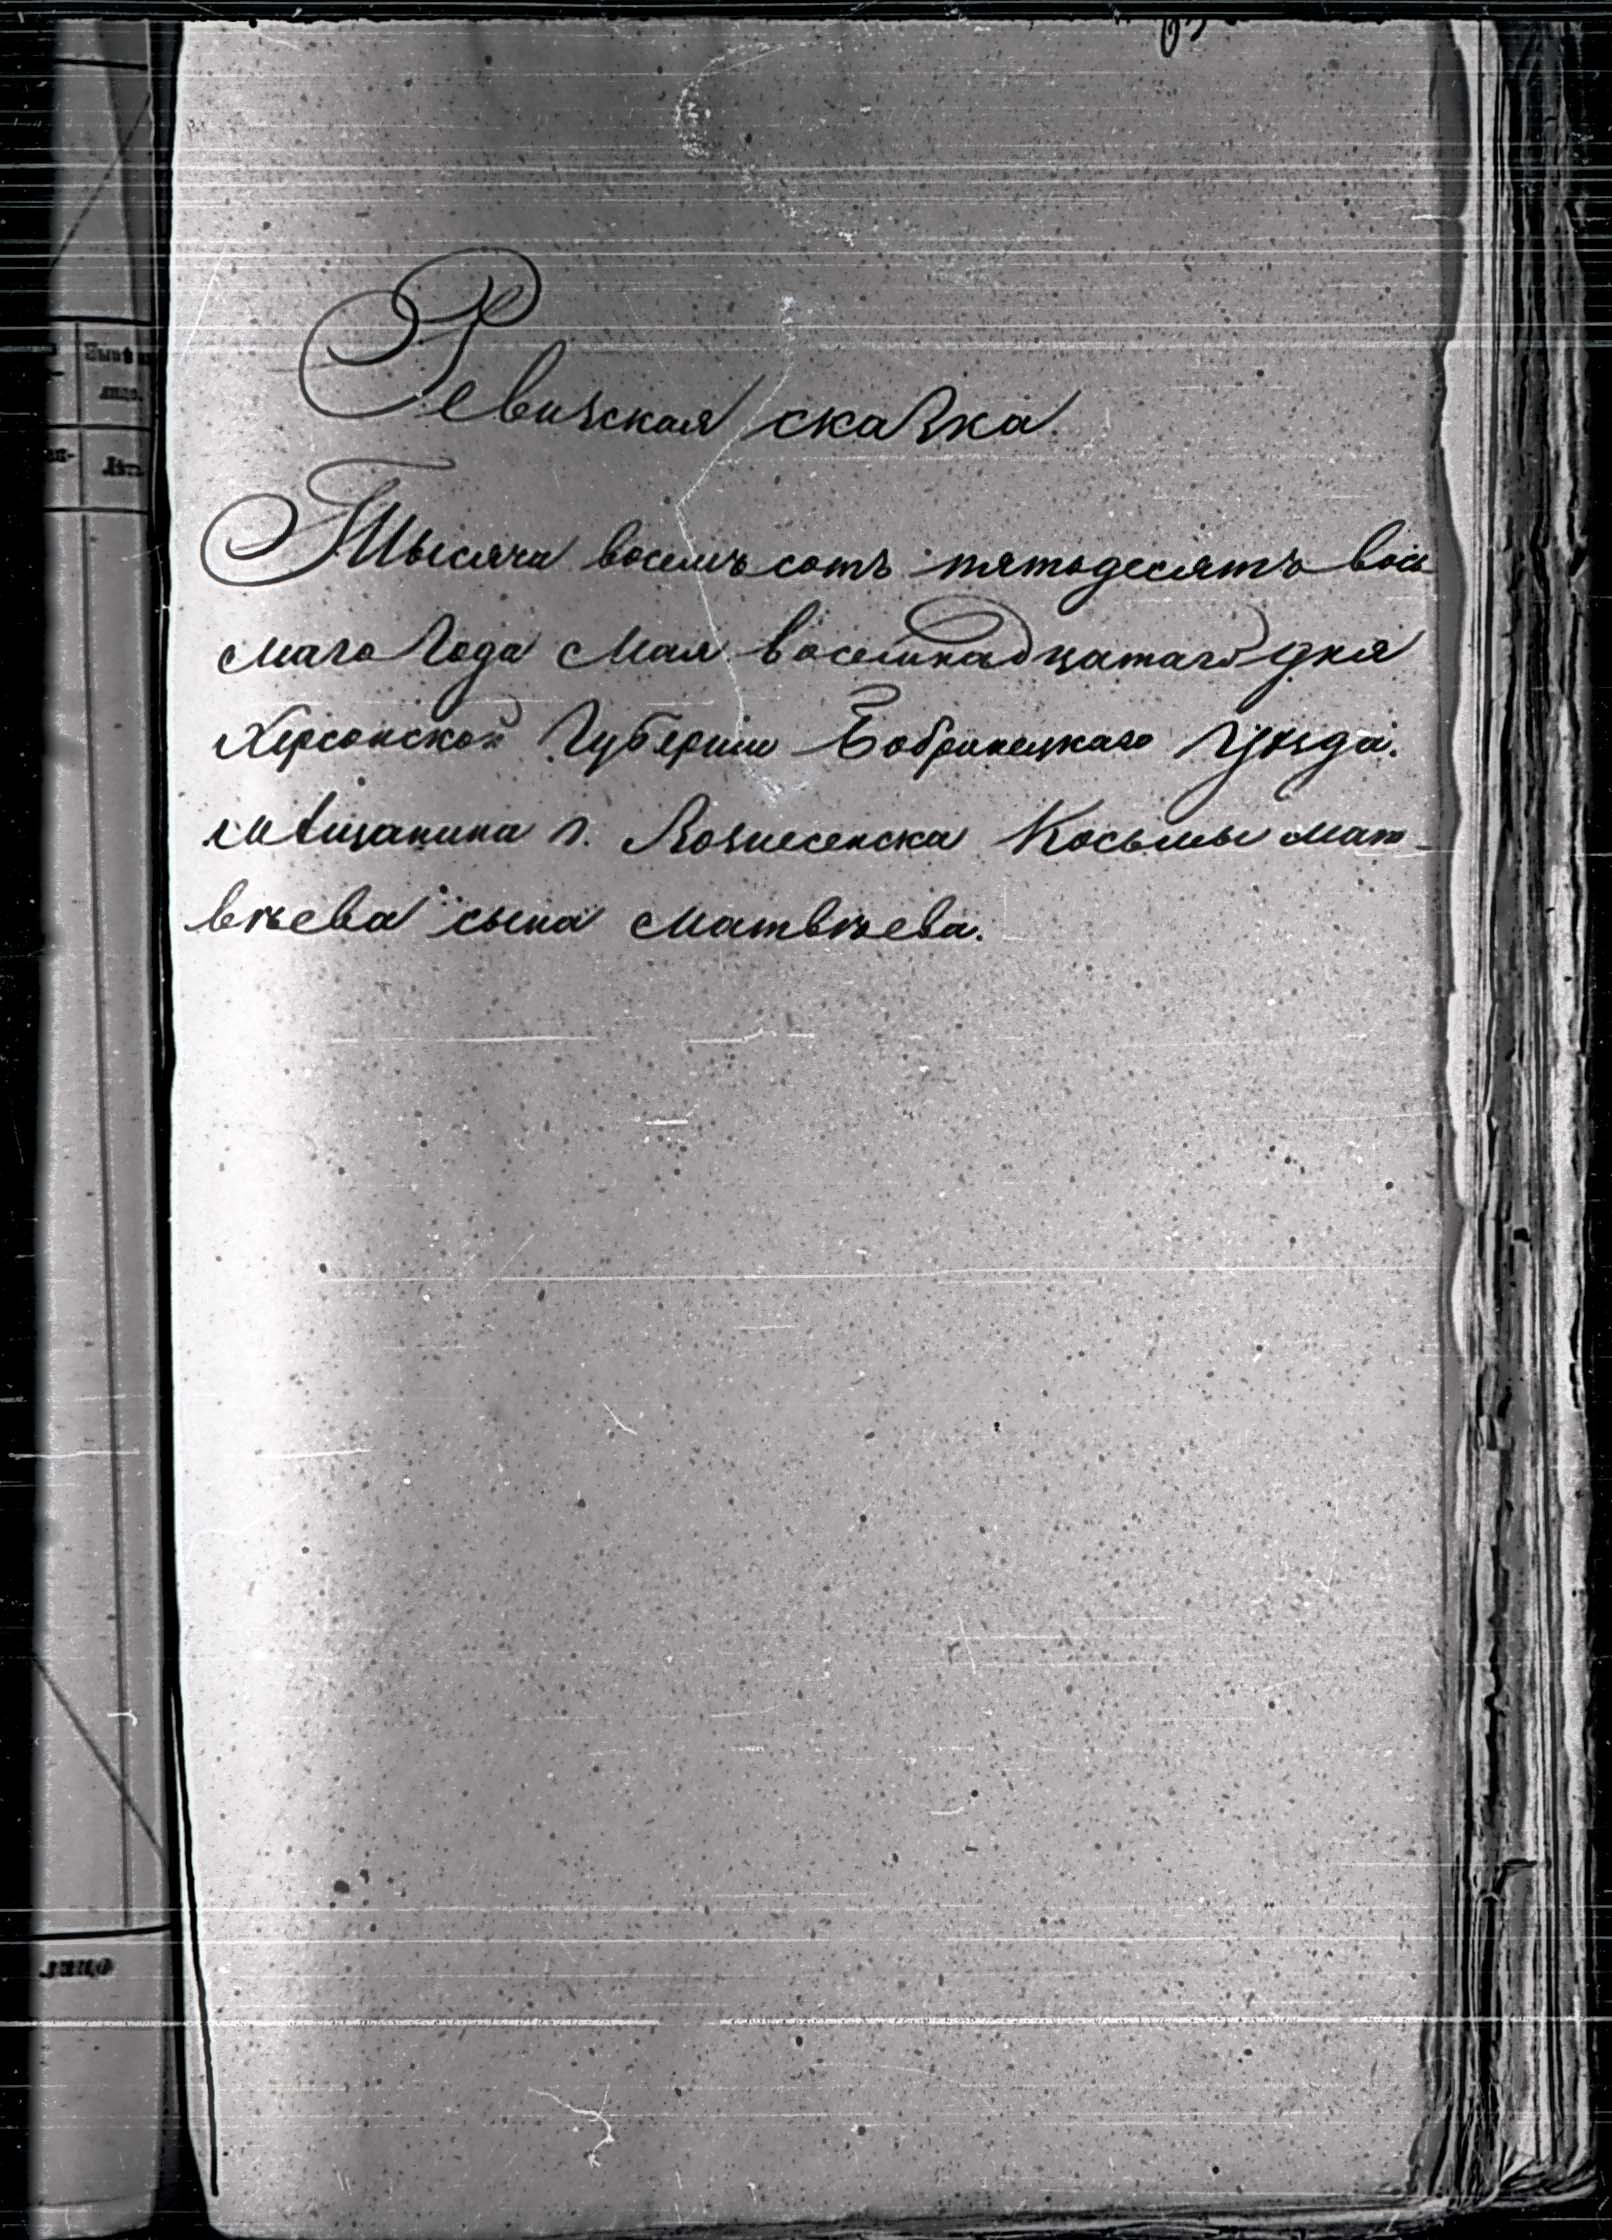 Ревизская сказка
Тысяча восемъ сотъ пятьдесятъ вось
маго Года Мая восемнадцатаго дня
Херсонской Губерніи Бобринецкаго Уѣзда.
мѣщанина г. Вознесенска Косьмы Мат-
вѣева сына Матвѣева.
Лѣтъ